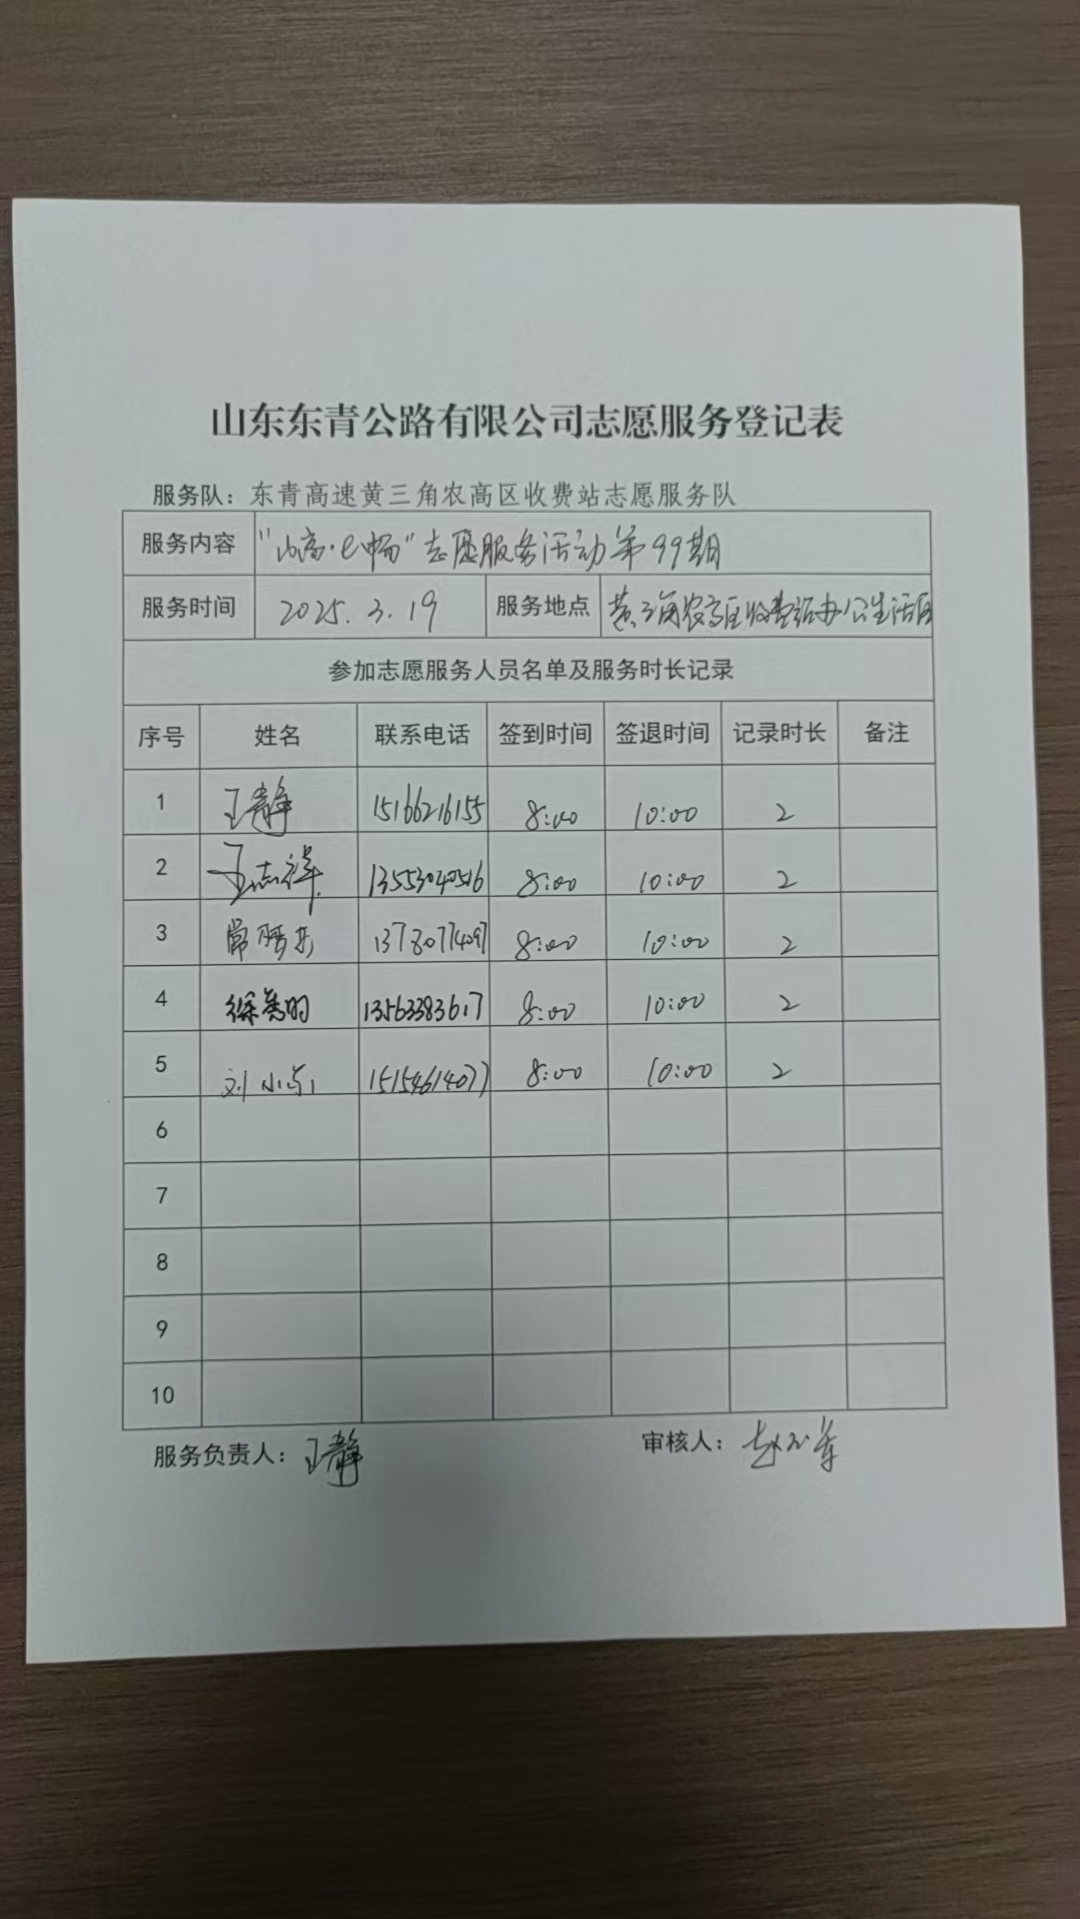 山东东青公路有限公司志愿服务登记表
服务队：东青高速黄三角农高区收费站志愿服务队
服务内容 "山高·e畅"志愿服务活动第99期
服务时间 2025.3.19 服务地点 黄三角农高区收费站办公生活区
参加志愿服务人员名单及服务时长记录
序号 姓名 联系电话 签到时间 签退时间 记录时长 备注
1 王静 15166216155 8:00 10:00 2
2 王志祥 13553040516 8:00 10:00 2
3 常 13780774097 8:00 10:00 2
4 徐 13563383617 8:00 10:00 2
5 刘小东 15154614077 8:00 10:00 2
6
7
8
9
10
服务负责人：王静 审核人：赵